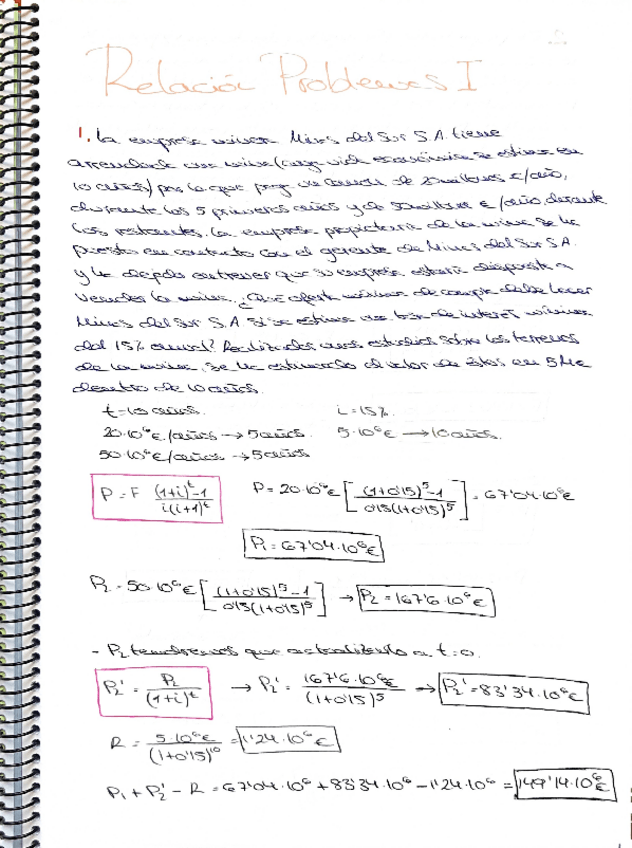 Relación Problemas I
1. La empresa minera Minas del Sur S.A. tiene
arrendada una mina (cuya vida económica se estima en
10 años) por la que paga un canon de 20 millones €/año,
durante los 5 primeros años y de 50 millones €/año durante
los restantes. La empresa propietaria de la mina se ha
puesto en contacto con el gerente de Minas del Sur S.A.
y le dejado entrever que su empresa estaría dispuesta a
vender la mina. ¿Qué oferta máxima de compra debe hacer
Minas del Sur S.A. si se estima una tasa de interés mínima
del 15% anual? Realizados unos estudios sobre los terrenos
de la mina, se ha estimado el valor de éstos en 5 M€
dentro de 10 años.
t=10 años. i=15%.
20·10⁶€/años → 5 años. 5·10⁶€ → 10 años.
50·10⁶€/años → 5 años
P = F (1+i)^t-1 / i(i+1)^t P = 20·10⁶€ [(1+0'15)⁵-1 / 0'15(1+0'15)⁵] = 67'04·10⁶€
P₁ = 67'04·10⁶€
P₂ = 50·10⁶€ [(1+0'15)⁵-1 / 0'15(1+0'15)⁵] → P₂ = 167'6·10⁶€
- P₂ tendremos que actualizarlo a t=0.
P₂' = P₂ / (1+i)^t → P₂' = 167'6·10⁶€ / (1+0'15)⁵ → P₂' = 83'34·10⁶€
R = 5·10⁶€ / (1+0'15)¹⁰ = 1'24·10⁶€
P₁ + P₂' - R = 67'04·10⁶ + 83'34·10⁶ - 1'24·10⁶ = 149'14·10⁶€